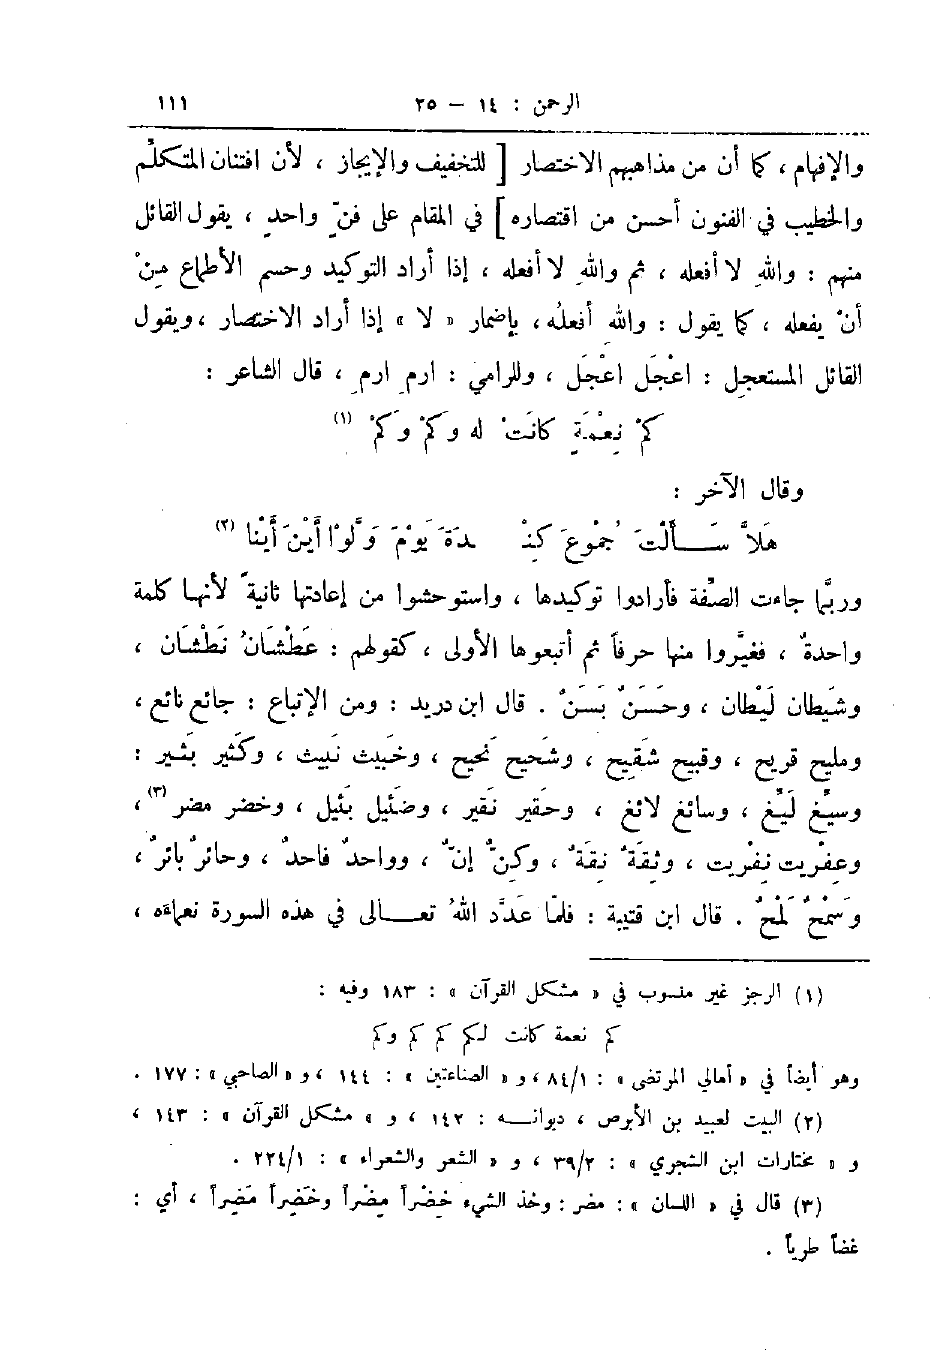 الرحمن : ١٤ – ٢٥ ١١١
والإفهام ، كما أن من مذاهبهم الاختصار [ للتخفيف والإيجاز ، لأن افتنان المتكلِّم
والخطيب في الفنون أحسن من اقتصاره ] في المقام على فنٍّ واحدٍ ، يقول القائل
منهم : واللهِ لا أفعله ، ثم واللهِ لا أفعله ، إذا أراد التوكيد وحسم الأطماع مِنْ
أنْ يفعله ، كما يقول : واللهِ أفعلُه ، بإضمار « لا » إذا أراد الاختصار ، ويقول
القائل المستعجِل : اعْجَل اعْجَل ، وللرامي : ارمِ ارمِ ، قال الشاعر :
كمْ نِعْمَةٍ كانَتْ له وكَمْ وَكَمْ (١)
وقال الآخر :
هَلاَّ سَـــأَلْتَ جُمُوعَ كِنْـ ـدَةَ يَوْمَ وَلَّوْا أَيْنَ أَيْنَا (٢)
وربَّما جاءت الصِّفة فأرادوا توكيدها ، واستوحشوا من إعادتها ثانيةً لأنهـا كلمة
واحدةٌ ، فغيَّروا منها حرفاً ثم أتبعوها الأولى ، كقولهم : عَطْشَانُ نَطْشَان ،
وشَيطان لَيْطان ، وحَسَنٌ بَسَنٌ . قال ابن دريد : ومن الإتباع : جائع نائع ،
ومليح قريح ، وقبيح شَقِيح ، وشَحيح نَحيح ، وخَبيث نَبيث ، وكَثير بَثير :
وسيِّغ لَيِّغ ، وسائغ لائغ ، وحَقير نَقير ، وضَئيل بَئيل ، وخضر مضر (٣) ،
وعِفْريت نِفْريت ، وثِقَةٌ نِقَةٌ ، وكِنٌّ إنٌّ ، وواحدٌ فاحدٌ ، وحائرٌ بائرٌ ،
وَسَمْحٌ لَمْحٌ . قال ابن قتيبة : فلمّا عَدَّد اللهُ تعــــالى في هذه السورة نعماءَه ،
(١) الرجز غير منسوب في « مشكل القرآن » : ١٨٣ وفيه :
كم نعمة كانت لـكم كم كم وكم
وهو أيضاً في « أمالي المرتضى » : ٨٤/١ ، و « الصناعتين » : ١٤٤ ، و « الصاحبي » : ١٧٧ .
(٢) البيت لعبيد بن الأبرص ، ديوانـــه : ١٤٢ ، و « مشكل القرآن » : ١٤٣ ،
و « مختارات ابن الشجري » : ٣٩/٢ ، و « الشعر والشعراء » : ٢٢٤/١ .
(٣) قال في « اللسان » : مضر : وخذ الشيء خِضْراً مِضْراً وخَضِراً مَضِراً ، أي :
غضاً طرياً .